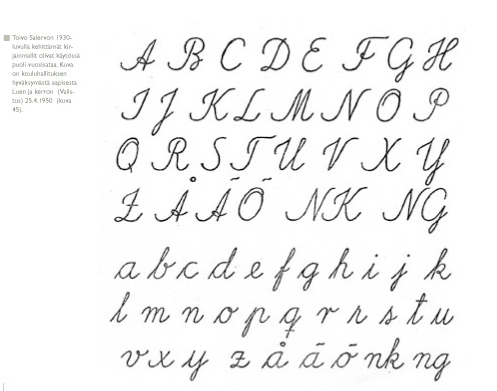 Toivo Salervon 1930-
luvulla kehittämät kir-
jainmallit olivat käytössä
puoli vuosisataa. Kuva
on kouluhallituksen
hyväksymästä aapisesta
Luen ja kerron (Valis-
tus) 25.4.1950 (kuva
45).
A B C D E F G H
I J K L M N O P
Q R S T U V X Y
Z Å Ā Ō NK NG
a b c d e f g h i j k
l m n o p q r r s t u
v x y z å ā ō nk ng